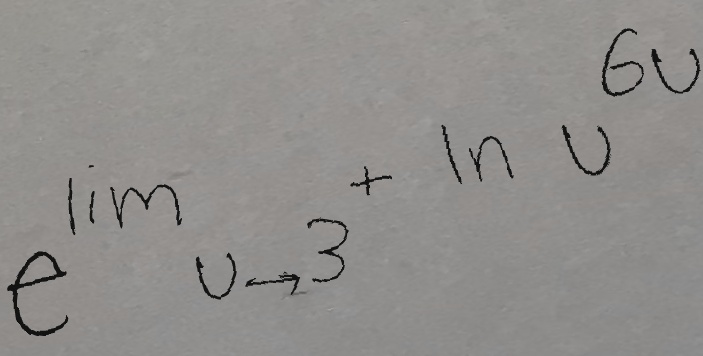 e^{\lim_{u \to 3^+} \ln u^{6u}}